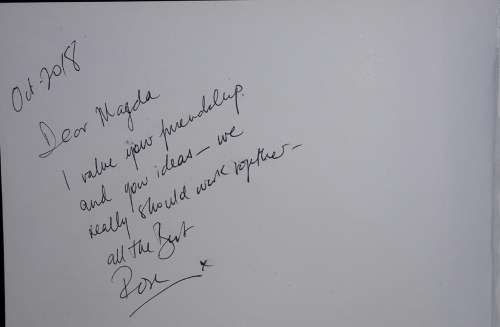 Oct. 2018
Dear Magda
I value your friendship
and your ideas – we
really should work together –
all the Best
Rose x